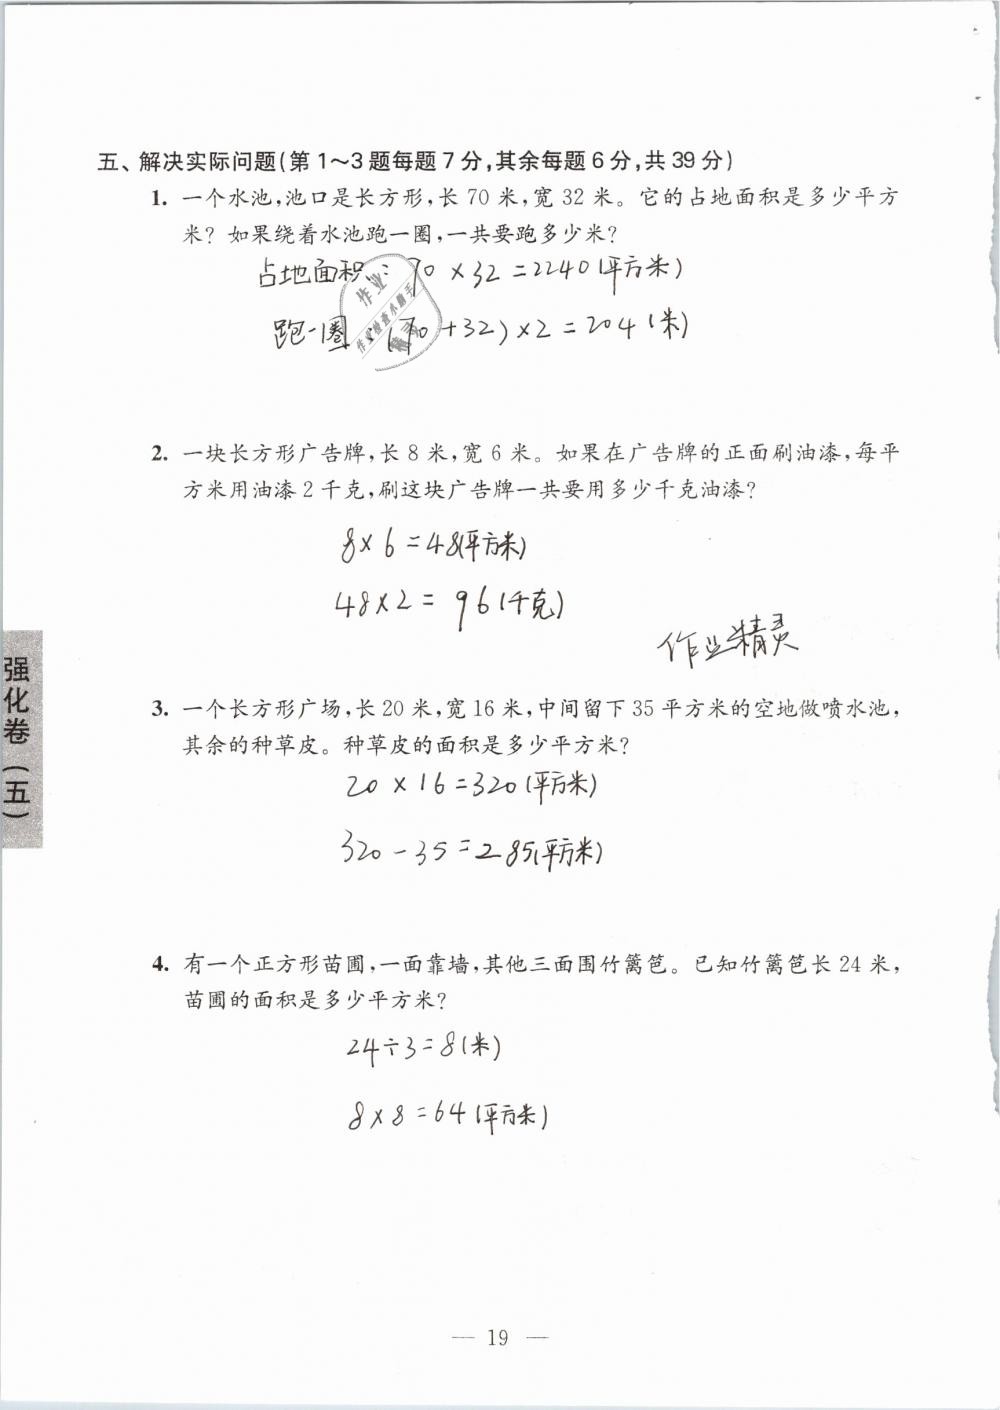 五、解决实际问题(第1~3题每题7分,其余每题6分,共39分)
1. 一个水池,池口是长方形,长70米,宽32米。它的占地面积是多少平方
米?如果绕着水池跑一圈,一共要跑多少米?
占地面积:70×32=2240(平方米)
跑一圈:(70+32)×2=204(米)
2. 一块长方形广告牌,长8米,宽6米。如果在广告牌的正面刷油漆,每平
方米用油漆2千克,刷这块广告牌一共要用多少千克油漆?
8×6=48(平方米)
48×2=96(千克)
作业精灵
3. 一个长方形广场,长20米,宽16米,中间留下35平方米的空地做喷水池,
其余的种草皮。种草皮的面积是多少平方米?
20×16=320(平方米)
320-35=285(平方米)
4. 有一个正方形苗圃,一面靠墙,其他三面围竹篱笆。已知竹篱笆长24米,
苗圃的面积是多少平方米?
24÷3=8(米)
8×8=64(平方米)
强化卷(五)
— 19 —